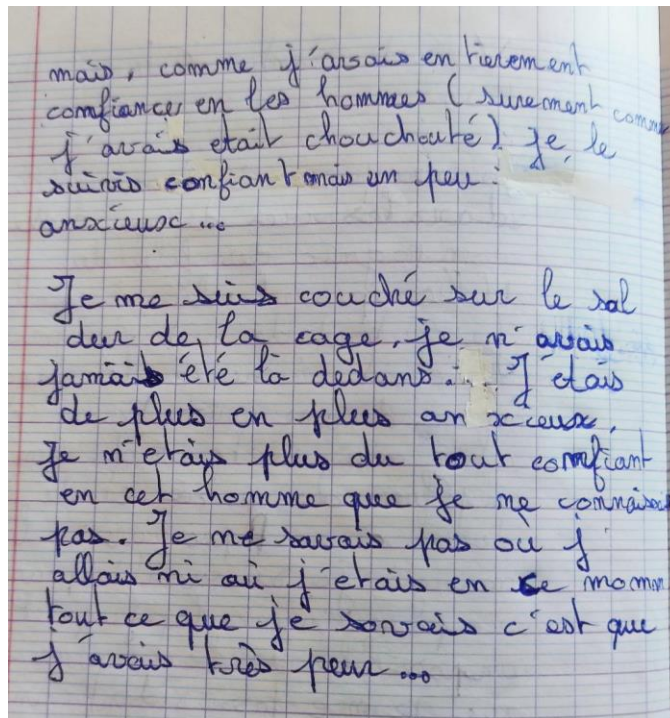 mais, comme j'arsais entierement
confiance en les hommes (surement comme
j'avais etait chouchouté) je le
suivis confiant mais un peu
anxieux...
Je me suis couché sur le sal
dur de la cage, je n'avais
jamais été là dedans... J'étais
de plus en plus anxcieux.
Je n'etais plus du tout confiant
en cet homme que je ne connaisais
pas. Je ne savais pas où j'
allais ni où j'etais en ce momn
tout ce que je savais c'est que
j'avais très peur...